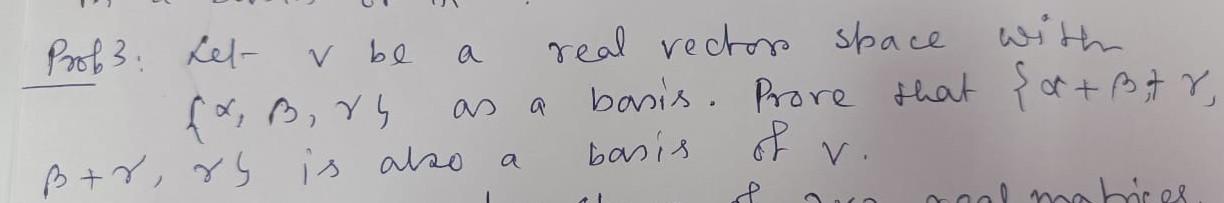 Prob 3: Let V be a real vector space with
{α, β, γ} as a basis. Prove that {α + β + γ,
β + γ, γ} is also a basis of V.
real matrices